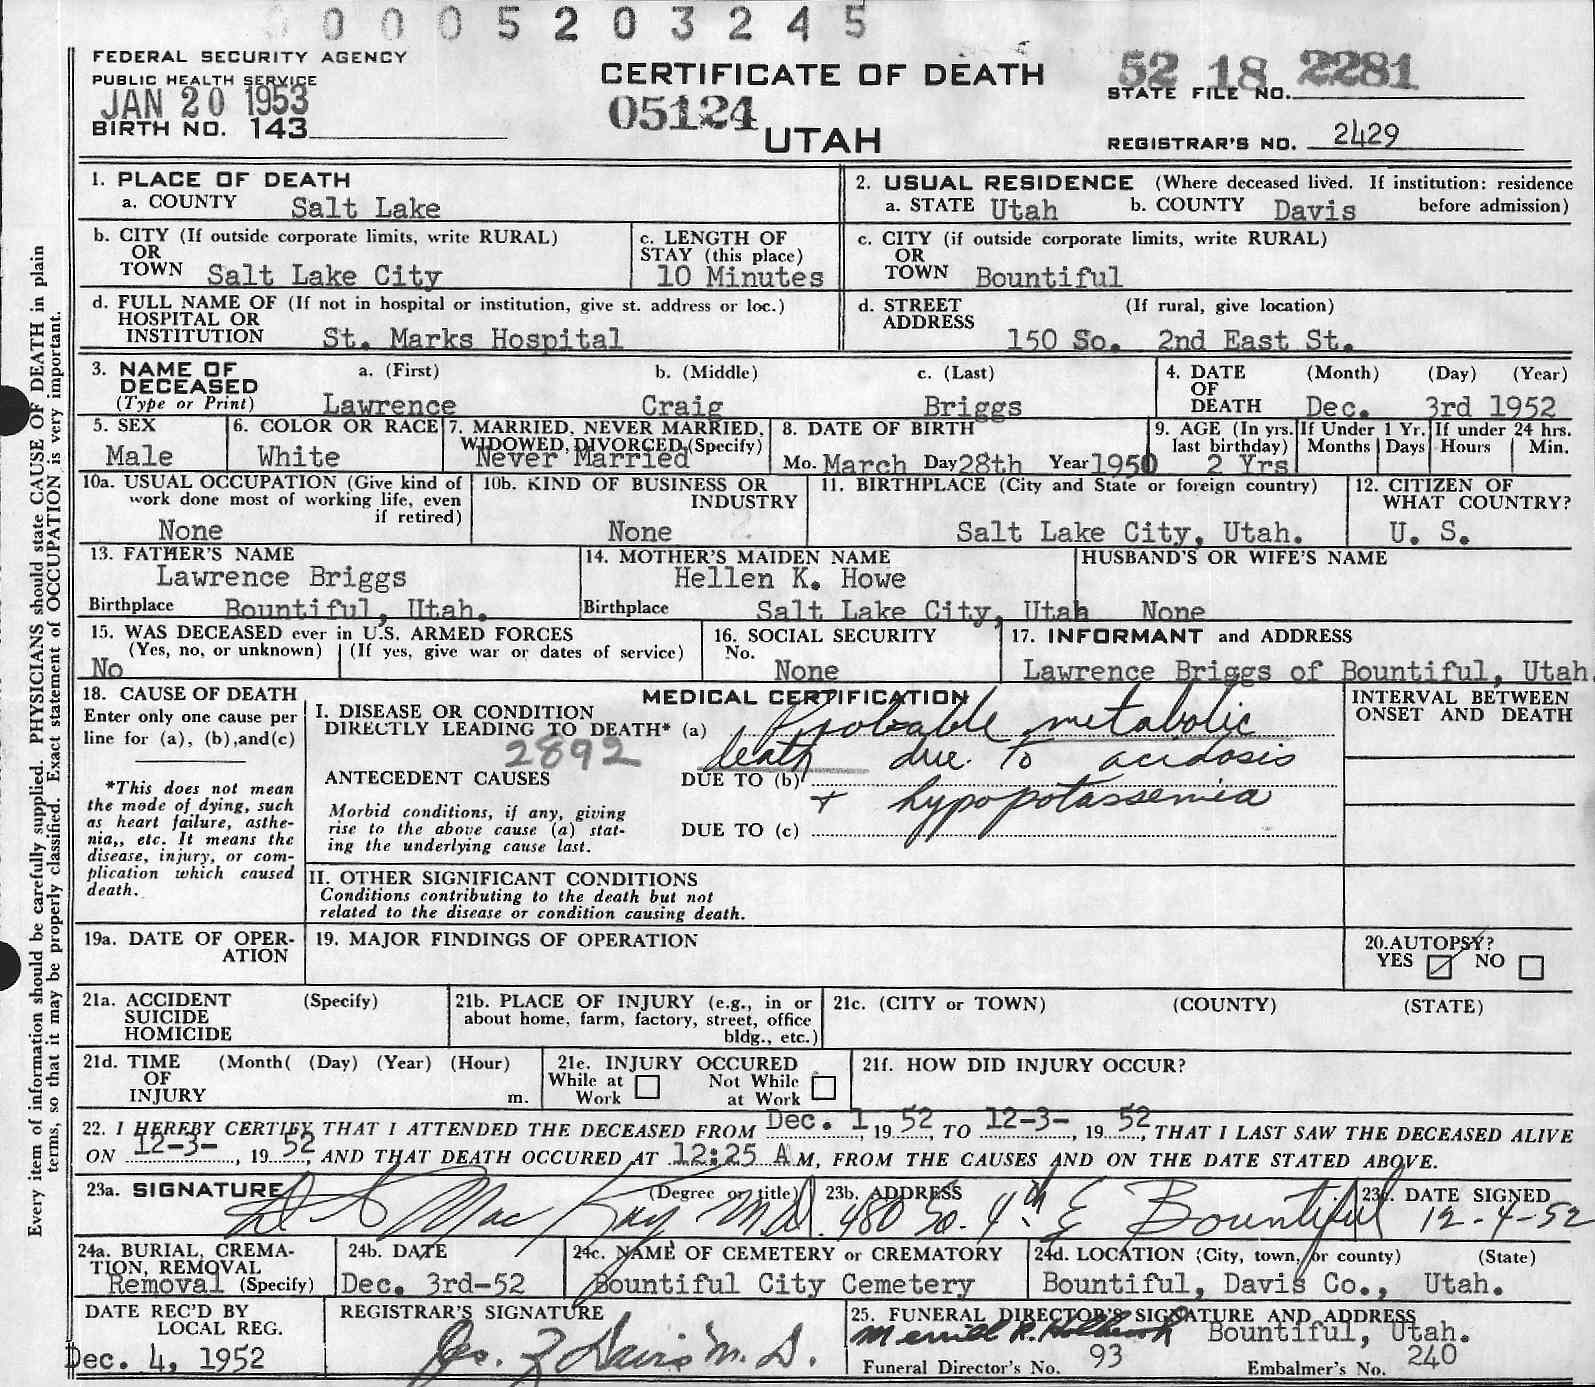 0 0 0 5 2 0 3 2 4 5
FEDERAL SECURITY AGENCY
PUBLIC HEALTH SERVICE
JAN 20 1953
BIRTH NO. 143
CERTIFICATE OF DEATH
05124
UTAH
52 18 2281
STATE FILE NO.
REGISTRAR'S NO. 2429
1. PLACE OF DEATH
a. COUNTY Salt Lake
2. USUAL RESIDENCE (Where deceased lived. If institution: residence
a. STATE Utah b. COUNTY Davis before admission)
b. CITY (If outside corporate limits, write RURAL)
OR
TOWN Salt Lake City
c. LENGTH OF
STAY (this place)
10 Minutes
c. CITY (if outside corporate limits, write RURAL)
OR
TOWN Bountiful
d. FULL NAME OF (If not in hospital or institution, give st. address or loc.)
HOSPITAL OR
INSTITUTION St. Marks Hospital
d. STREET (If rural, give location)
ADDRESS
150 So. 2nd East St.
3. NAME OF a. (First) b. (Middle) c. (Last)
DECEASED
(Type or Print) Lawrence Craig Briggs
4. DATE (Month) (Day) (Year)
OF
DEATH Dec. 3rd 1952
5. SEX
Male
6. COLOR OR RACE
White
7. MARRIED, NEVER MARRIED,
WIDOWED, DIVORCED (Specify)
Never Married
8. DATE OF BIRTH
Mo. March Day 28th Year 1950
9. AGE (In yrs.
last birthday)
2 Yrs
If Under 1 Yr.
Months Days
If under 24 hrs.
Hours Min.
10a. USUAL OCCUPATION (Give kind of
work done most of working life, even
if retired)
None
10b. KIND OF BUSINESS OR
INDUSTRY
None
11. BIRTHPLACE (City and State or foreign country)
Salt Lake City, Utah.
12. CITIZEN OF
WHAT COUNTRY?
U. S.
13. FATHER'S NAME
Lawrence Briggs
Birthplace Bountiful, Utah.
14. MOTHER'S MAIDEN NAME
Hellen K. Howe
Birthplace Salt Lake City, Utah
HUSBAND'S OR WIFE'S NAME
None
15. WAS DECEASED ever in U.S. ARMED FORCES
(Yes, no, or unknown) (If yes, give war or dates of service)
No
16. SOCIAL SECURITY
No.
None
17. INFORMANT and ADDRESS
Lawrence Briggs of Bountiful, Utah.
18. CAUSE OF DEATH
Enter only one cause per
line for (a), (b), and (c)
*This does not mean
the mode of dying, such
as heart failure, asthe-
nia,, etc. It means the
disease, injury, or com-
plication which caused
death.
MEDICAL CERTIFICATION
I. DISEASE OR CONDITION
DIRECTLY LEADING TO DEATH* (a) Probable metabolic
2892 death due to acidosis
ANTECEDENT CAUSES DUE TO (b)
+ hypopotassemia
Morbid conditions, if any, giving
rise to the above cause (a) stat-
ing the underlying cause last.
DUE TO (c)
INTERVAL BETWEEN
ONSET AND DEATH
II. OTHER SIGNIFICANT CONDITIONS
Conditions contributing to the death but not
related to the disease or condition causing death.
19a. DATE OF OPER-
ATION
19. MAJOR FINDINGS OF OPERATION
20. AUTOPSY?
YES NO
21a. ACCIDENT (Specify)
SUICIDE
HOMICIDE
21b. PLACE OF INJURY (e.g., in or
about home, farm, factory, street, office
bldg., etc.)
21c. (CITY or TOWN) (COUNTY) (STATE)
21d. TIME (Month( (Day) (Year) (Hour)
OF
INJURY m.
21e. INJURY OCCURED
While at Not While
Work at Work
21f. HOW DID INJURY OCCUR?
22. I HEREBY CERTIFY THAT I ATTENDED THE DECEASED FROM Dec. 1, 19 52, TO 12-3-, 19 52, THAT I LAST SAW THE DECEASED ALIVE
ON 12-3-, 19 52, AND THAT DEATH OCCURED AT 12:25 A M, FROM THE CAUSES AND ON THE DATE STATED ABOVE.
23a. SIGNATURE (Degree or title) 23b. ADDRESS 23c. DATE SIGNED
Mac Kay M.D. 480 So. 4th E Bountiful 12-4-52
24a. BURIAL, CREMA-
TION, REMOVAL
Removal (Specify)
24b. DATE
Dec. 3rd-52
24c. NAME OF CEMETERY or CREMATORY
Bountiful City Cemetery
24d. LOCATION (City, town, or county) (State)
Bountiful, Davis Co., Utah.
DATE REC'D BY
LOCAL REG.
Dec. 4, 1952
REGISTRAR'S SIGNATURE
Davis M. D.
25. FUNERAL DIRECTOR'S SIGNATURE AND ADDRESS
Merrill R. Holbrook Bountiful, Utah.
Funeral Director's No. 93 Embalmer's No. 240
Every item of information should be carefully supplied. PHYSICIANS should state CAUSE OF DEATH in plain
terms, so that it may be properly classified. Exact statement of OCCUPATION is very important.